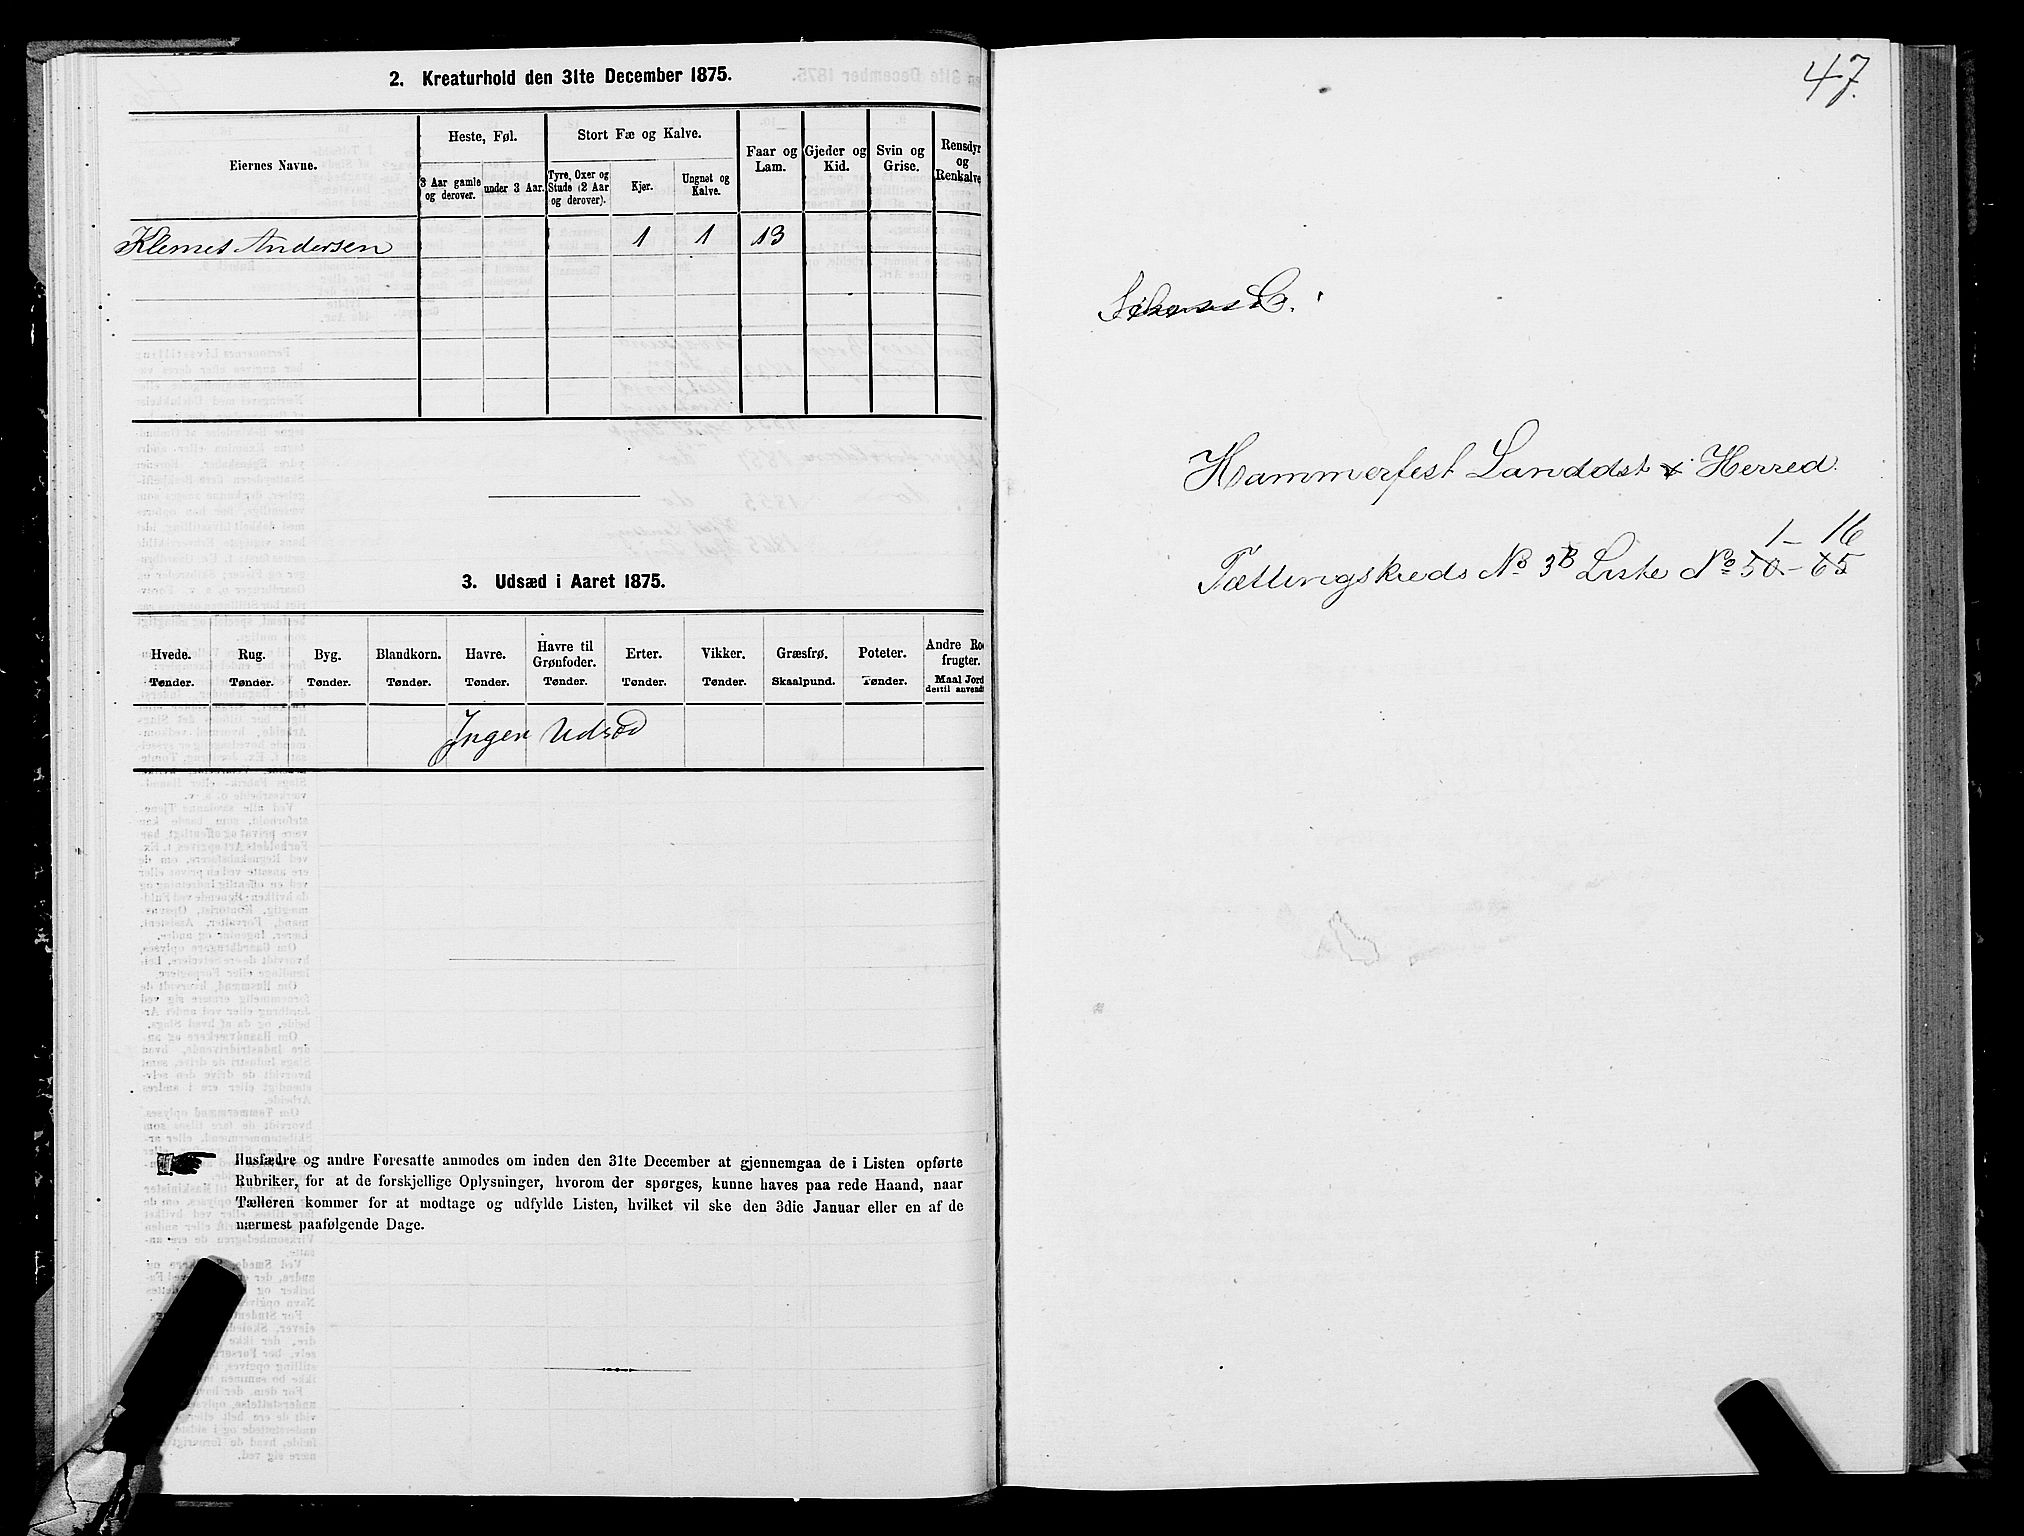 2. Kreaturhold den 31te December 1875.
Eiernes Navne.
Heste, Føl.
Stort Fæ og Kalve.
Faar og Lam.
Gjeder og Kid.
Svin og Grise.
Rensdyr og Renkalve
3 Aar gamle og derover.
under 3 Aar.
Tyre, Oxer og Stude (2 Aar og derover).
Kjør.
Ungnøt og Kalve.
Klemet Andersen 1 1 13
3. Udsæd i Aaret 1875.
Hvede. Rug. Byg. Blandkorn. Havre. Havre til Grønfoder. Erter. Vikker. Græsfrø. Poteter. Andre Ro frugter.
Tønder. Tønder. Tønder. Tønder. Tønder. Tønder. Tønder. Tønder. Skaalpund. Tønder. Maal Jord dertil anvendt
Ingen Udsæd
Husfædre og andre Foresatte anmodes om inden den 31te December at gjennemgaa de i Listen opførte
Rubriker, for at de forskjellige Oplysninger, hvorom der spørges, kunne haves paa rede Haand, naar
Tælleren kommer for at modtage og udfylde Listen, hvilket vil ske den 3die Januar eller en af de
nærmest paafølgende Dage.
47.
Hammerfest Landdst Herred.
1 - 16
Tællingskreds No 3B Liste No 50 - 65